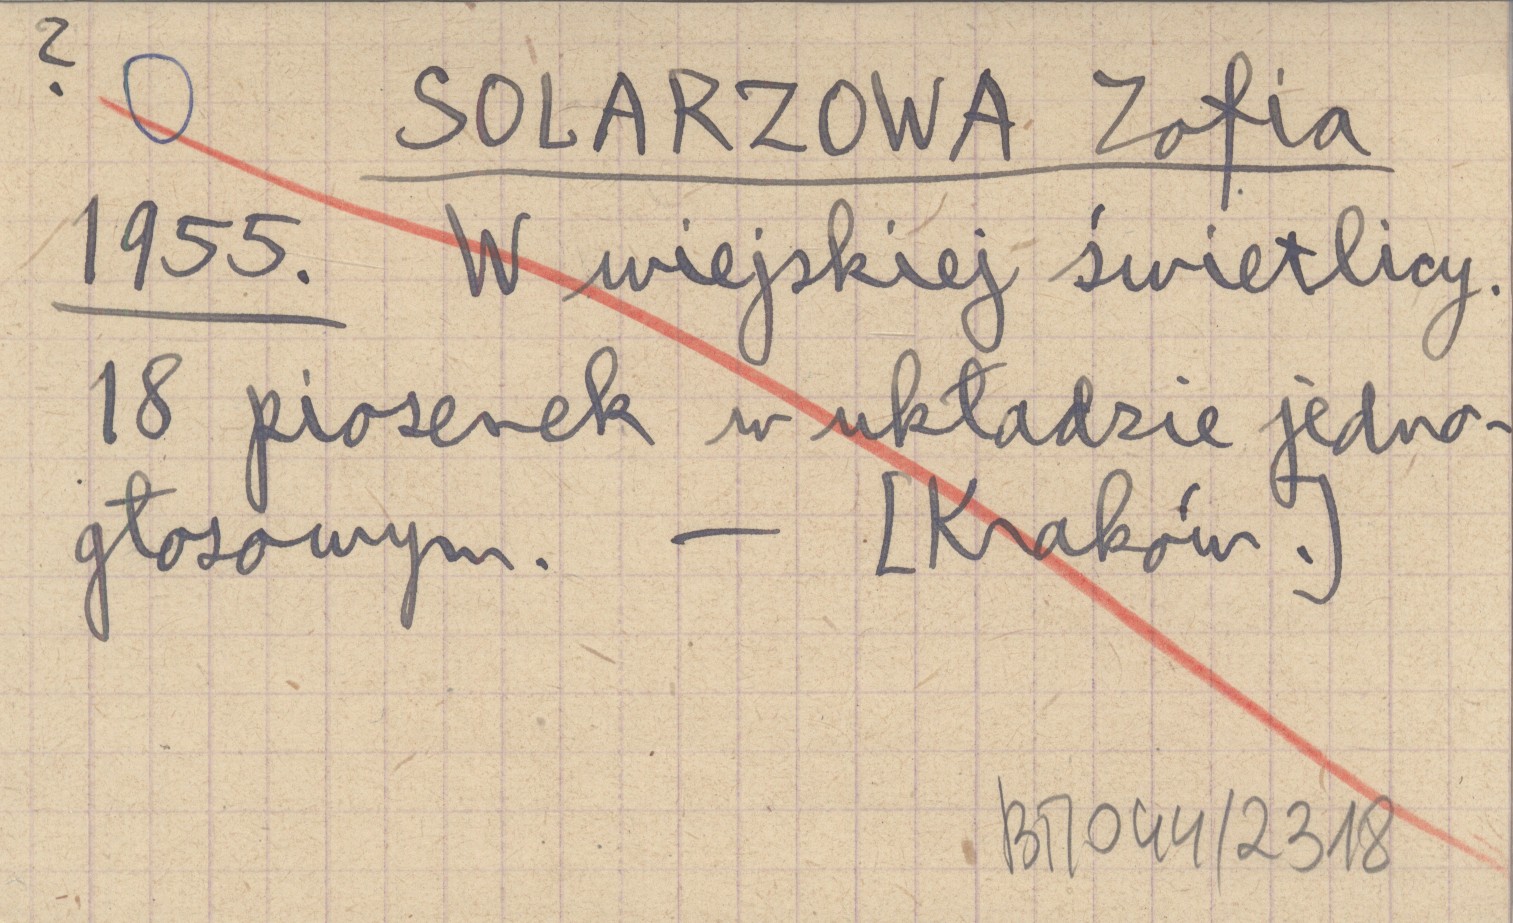 ?
SOLARZOWA Zofia
1955. W wiejskiej świetlicy.
18 piosenek w układzie jedno-
głosowym. — [Kraków.]
BN044/2318